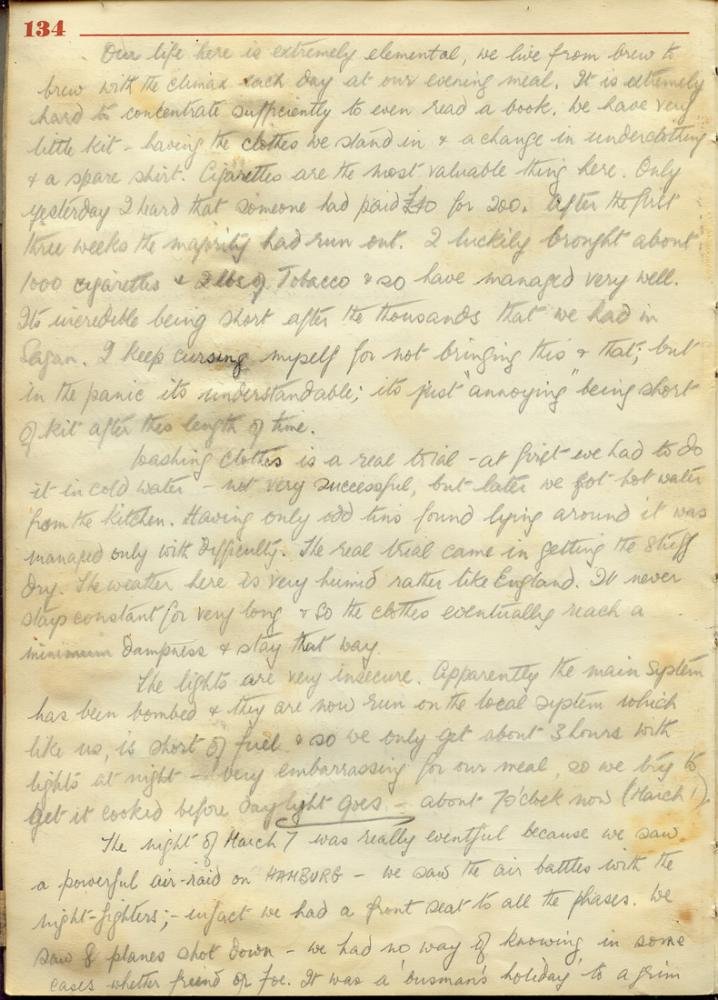 134
Our life here is extremely elemental, we live from brew to
brew with the climax each day at our evening meal. It is extremely
hard to concentrate sufficiently to even read a book. We have very
little kit - having the clothes we stand in & a change in underclothing
& a spare shirt. Cigarettes are the most valuable thing here. Only
yesterday I hard that someone had paid £40 for 200. After the first
three weeks the majority had run out. I luckily brought about
1000 cigarettes & 2 lbs of Tobacco & so have managed very well.
Its incredible being short after the thousands that we had in
Sagan. I keep cursing myself for not bringing this & that; but
in the panic its understandable; its just "annoying" being short
of kit after this length of time.
Washing clothes is a real trial - at first we had to do
it in cold water - not very successful, but later we got hot water
from the kitchen. Having only odd tins found lying around it was
managed only with difficulty. The real trial came in getting the stuff
dry. The weather here is very humid rather like England. It never
stays constant for very long & so the clothes eventually reach a
minimum dampness & stay that way.
The lights are very insecure. Apparently the main system
has been bombed & they are now run on the local system which
like us, is short of fuel & so we only get about 3 hours with
lights at night - very embarrassing for our meal, so we try to
get it cooked before daylight goes - about 7 o'clock now (March 1)
The night of March 7 was really eventful because we saw
a powerful air-raid on HAMBURG - we saw the air battles with the
night-fighters; - infact we had a front seat to all the phases. We
saw 8 planes shot down - we had no way of knowing in some
cases whether friend or foe. It was a 'busman's holiday' to a grim